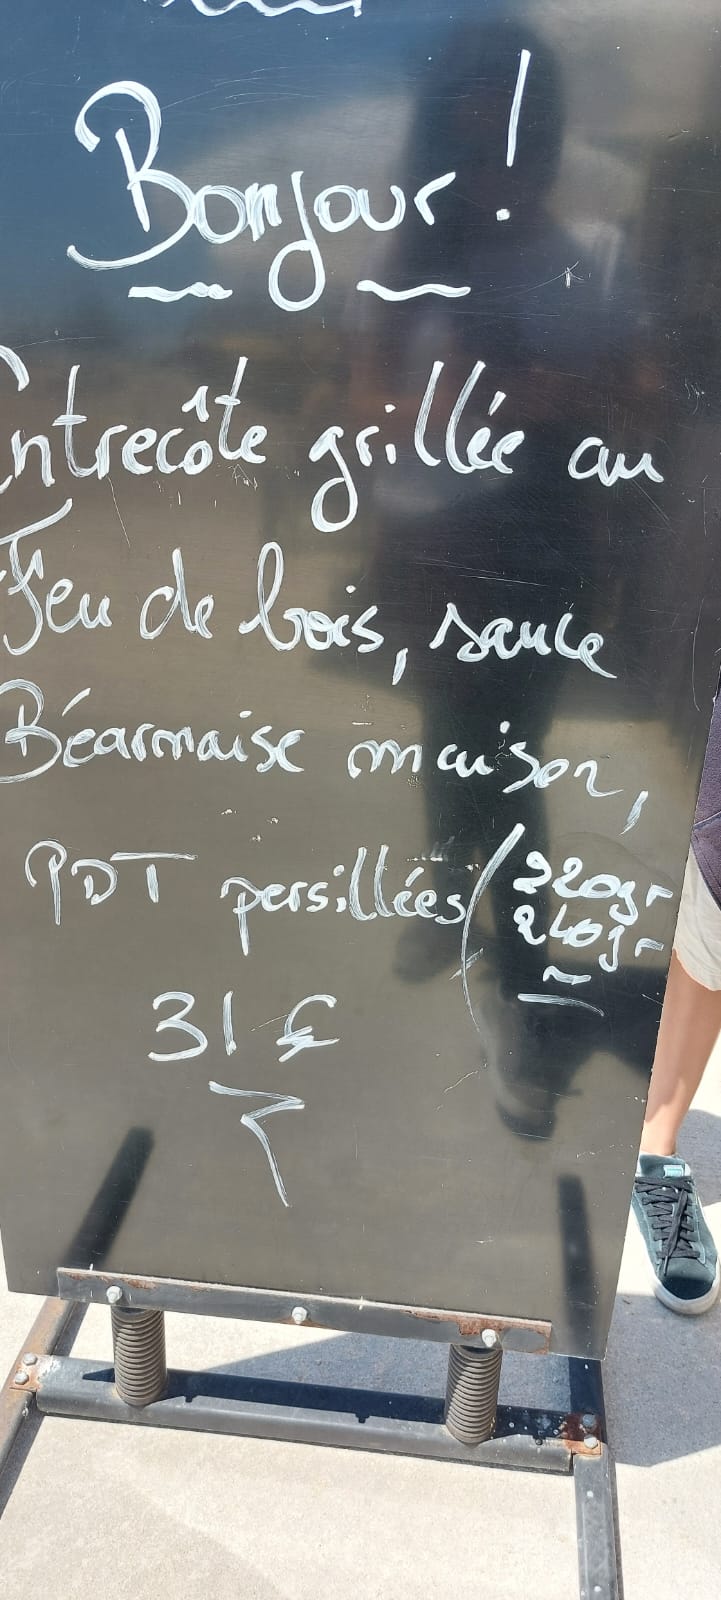 Bonjour !
Entrecôte grillée au
Feu de bois, sauce
Béarnaise maison,
PDT persillées (220gr
240gr
31 €